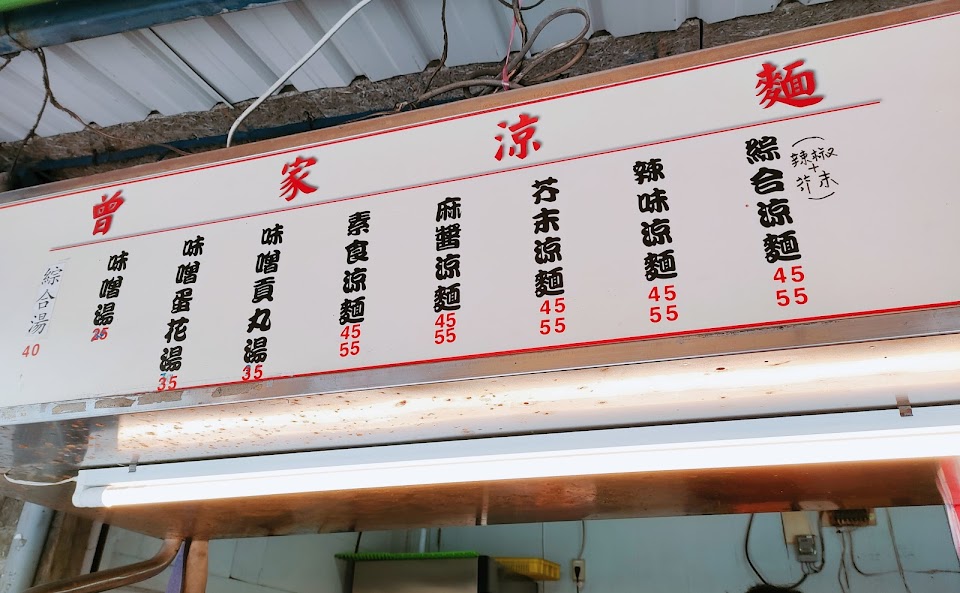 曾家涼麵
綜合涼麵
(辣椒
+
芥末)
45
55
辣味涼麵
45
55
芥末涼麵
45
55
麻醬涼麵
45
55
素食涼麵
45
55
味噌貢丸湯
35
味噌蛋花湯
35
味噌湯
25
綜合湯
40